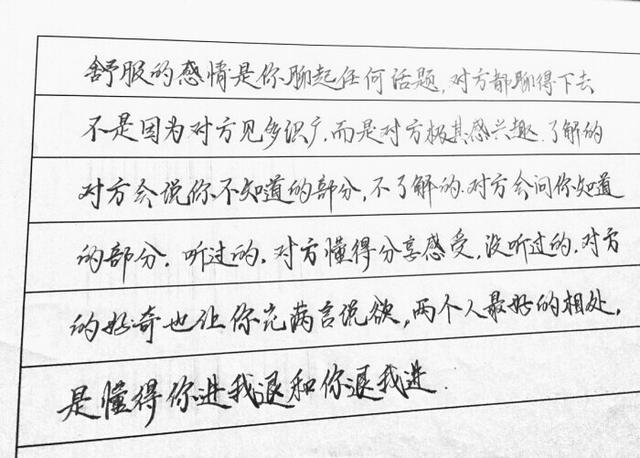 舒服的感情是你聊起任何话题,对方都聊得下去
不是因为对方见多识广,而是对方极其感兴趣.了解的
对方会说你不知道的部分,不了解的.对方会问你知道
的部分.听过的,对方懂得分享感受,没听过的,对方
的好奇也让你充满言说欲,两个人最好的相处,
是懂得你进我退和你退我进.